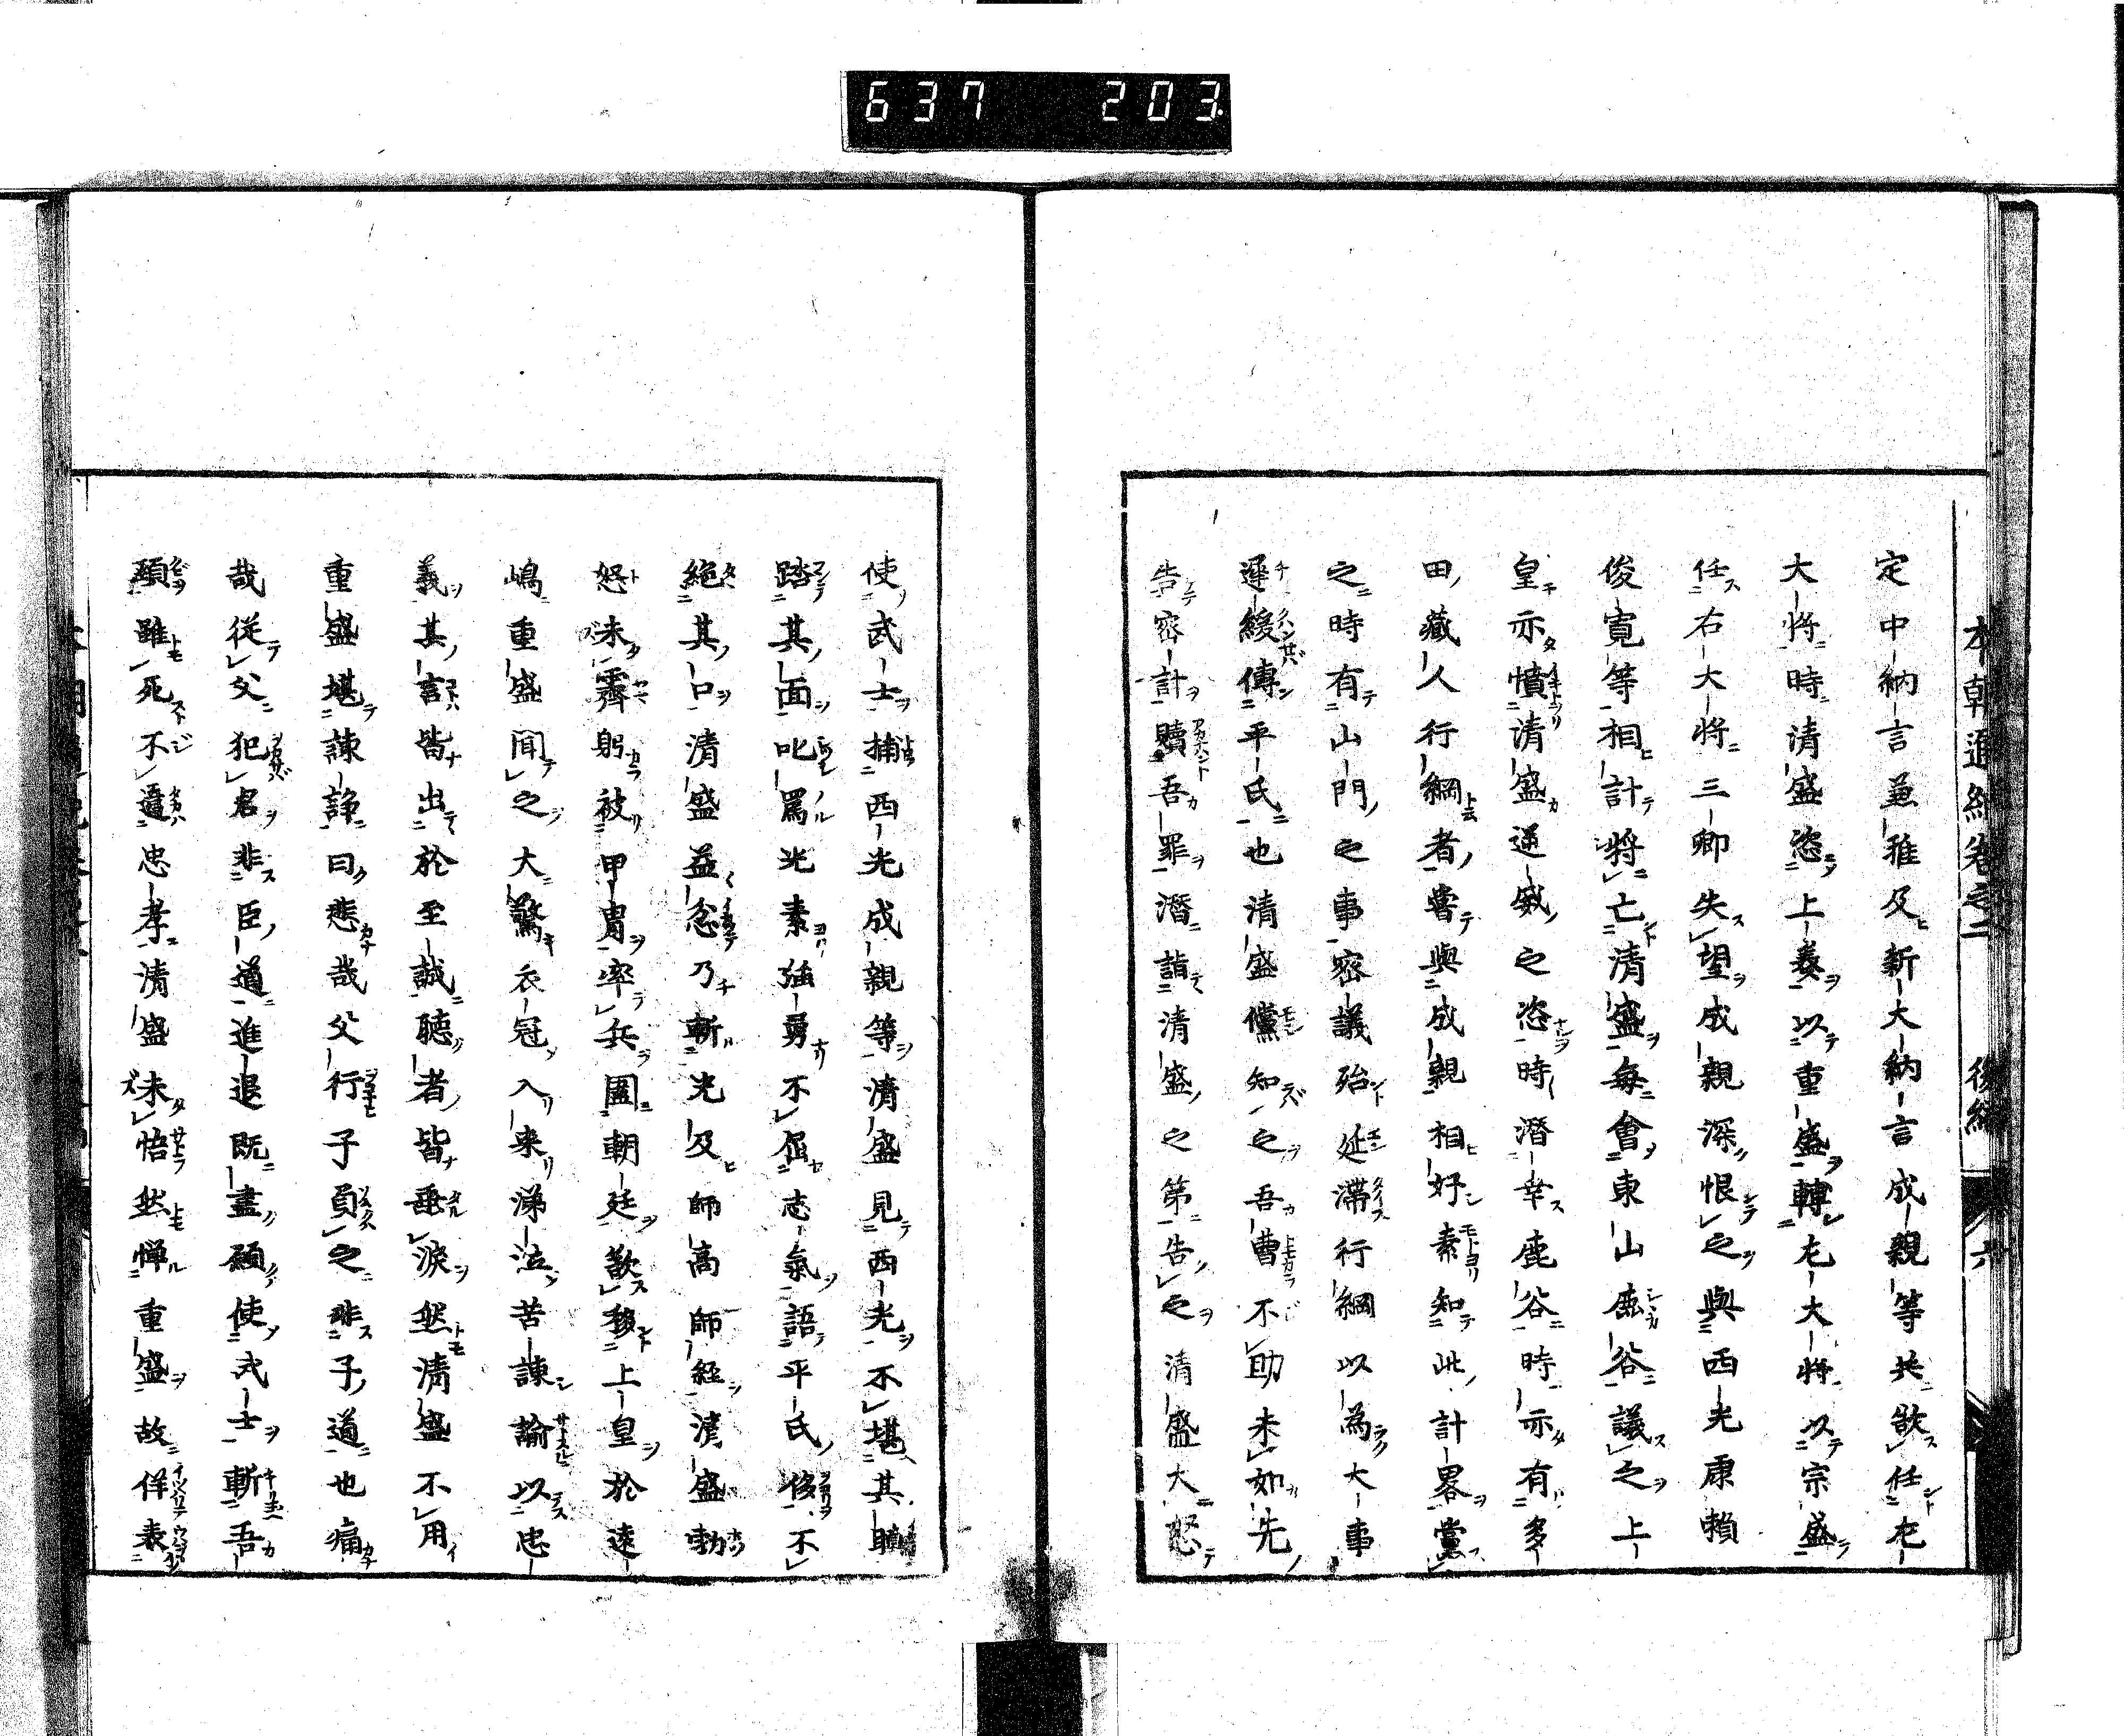 637 203
本朝通紀巻之二 後編 六
定中納言兼雅及新大納言成親等共欲任左
大將時清盛恣上奏以重盛轉左大將以宗盛
任右大將三卿失望成親深恨之與西光康賴
俊寛等相計將亡清盛每會東山鹿谷議之上
皇亦憤清盛逞威之恣時潛幸鹿谷時亦有多
田藏人行綱者嘗與成親相好素知此計畧黨
之時有山門之事密議殆延滯行綱以為大事
遲緩傳平氏也清盛儻知之吾曹不助未如先
告密計贖吾罪潛詣清盛之第告之清盛大怒
使武士捕西光成親等清盛見西光不堪其
踏其面叱罵光素強勇不屈志氣語平氏侈不
絕其口清盛益忿乃斬光及師高師経清盛勃
怒未霽躬被甲冑率兵圍朝廷欲移上皇於遠
嶋重盛聞之大驚衣冠入来涕泣苦諫諭以忠
義其言皆出於至誠聽者皆垂淚然清盛不用
重盛堪諫諍曰悲哉父行子負之非子道也痛
哉從父犯君非臣道進退既盡願使武士斬吾
頸雖死不違忠孝清盛未悟然憚重盛故佯表